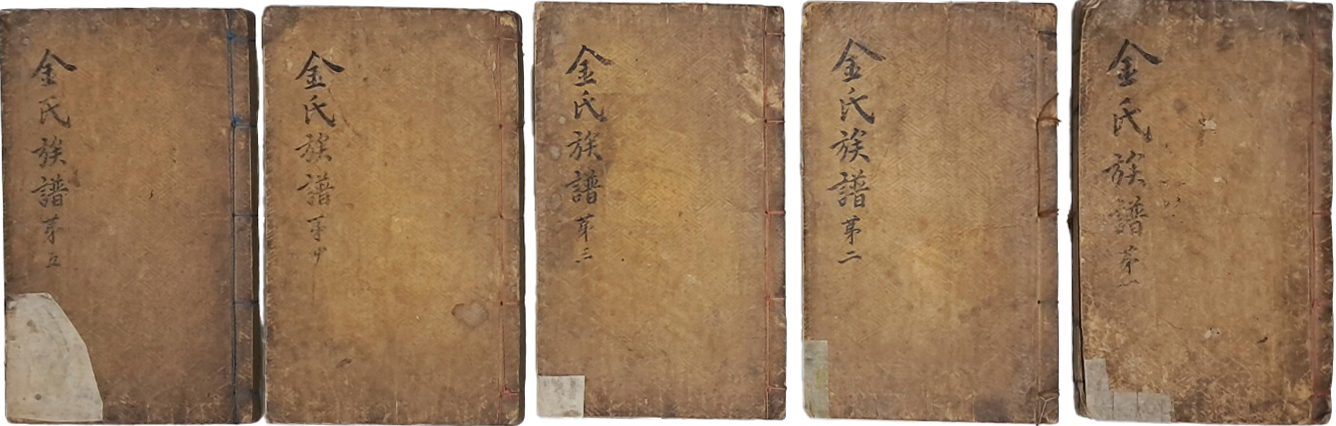 金氏族譜苐一
金氏族譜苐二
金氏族譜苐三
金氏族譜苐
金氏族譜苐五